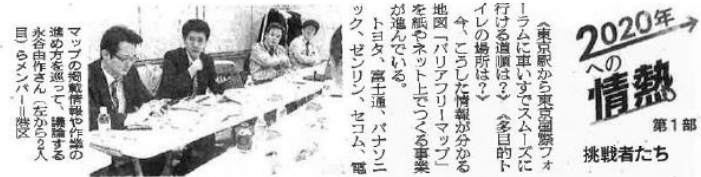 2020年
への
情熱
第1部
挑戦者たち
《東京駅から東京国際フォ
ーラムに車いすでスムーズに
行ける道順は?》《多目的ト
イレの場所は?》
今、こうした情報が分かる
地図「バリアフリーマップ」
を紙やネット上でつくる事業
が進んでいる。
トヨタ、富士通、パナソニ
ック、ゼンリン、セコム、電
マップの掲載情報や作業の
進め方を巡って、議論する
永谷由作さん(左から2人
目)らメンバー=港区